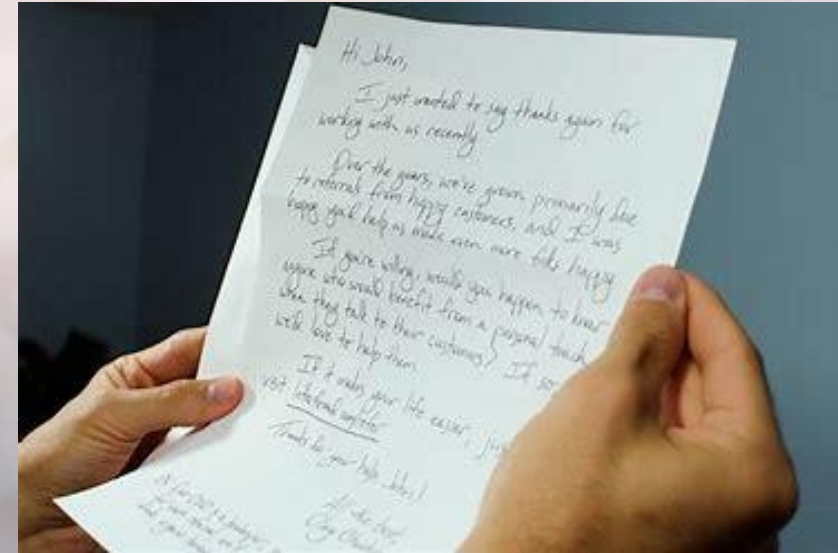 Hi John,
I just wanted to say thanks again for
working with us recently
Over the years, we've grown primarily due
to referrals from happy customers, and I was
happy you'd help us make even more folks happy
If you're willing, would you happen to know
anyone who would benefit from a personal touch
when they talk to their customers? If so
we'd love to help them
If it makes your life easier, jus
visit
Thanks for your help, John!
All the best